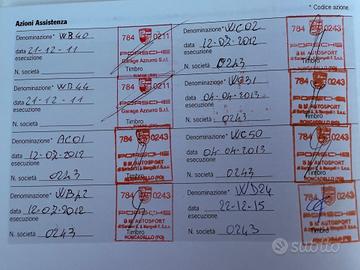 Azioni Assistenza
* Codice azione
Denominazione* WB40
data 21-12-11
esecuzione
N. società
784 0211
PORSCHE
Garage Azzurro S.r.l.
Timbro
Denominazione* WC02
data 12-07-2012
esecuzione
N. società 0243
784 0243
PORSCHE
B M AUTOSPORT
RONCADELLO (FO)
Timbro
Denominazione* WB44
data 21-12-11
esecuzione
N. società
784 0211
PORSCHE
Garage Azzurro S.r.l.
Timbro
Denominazione*
data 04-04-2013
esecuzione
N. società 0243
784 0243
PORSCHE
B M AUTOSPORT
RONCADELLO (FO)
Timbro
Denominazione* AC01
data 12-07-2012
esecuzione
N. società 0243
784 0243
PORSCHE
B M AUTOSPORT
RONCADELLO (FO)
Timbro
Denominazione* WC50
data 04-04-2013
esecuzione
N. società 0243
784 0243
PORSCHE
B M AUTOSPORT
RONCADELLO (FO)
Timbro
Denominazione*
data 12-07-2012
esecuzione
N. società 0243
784 0243
PORSCHE
B M AUTOSPORT
RONCADELLO (FO)
Timbro
Denominazione* WD24
data 22-12-15
esecuzione
N. società 0243
784 0243
PORSCHE
B M AUTOSPORT
RONCADELLO (FO)
Timbro
subito